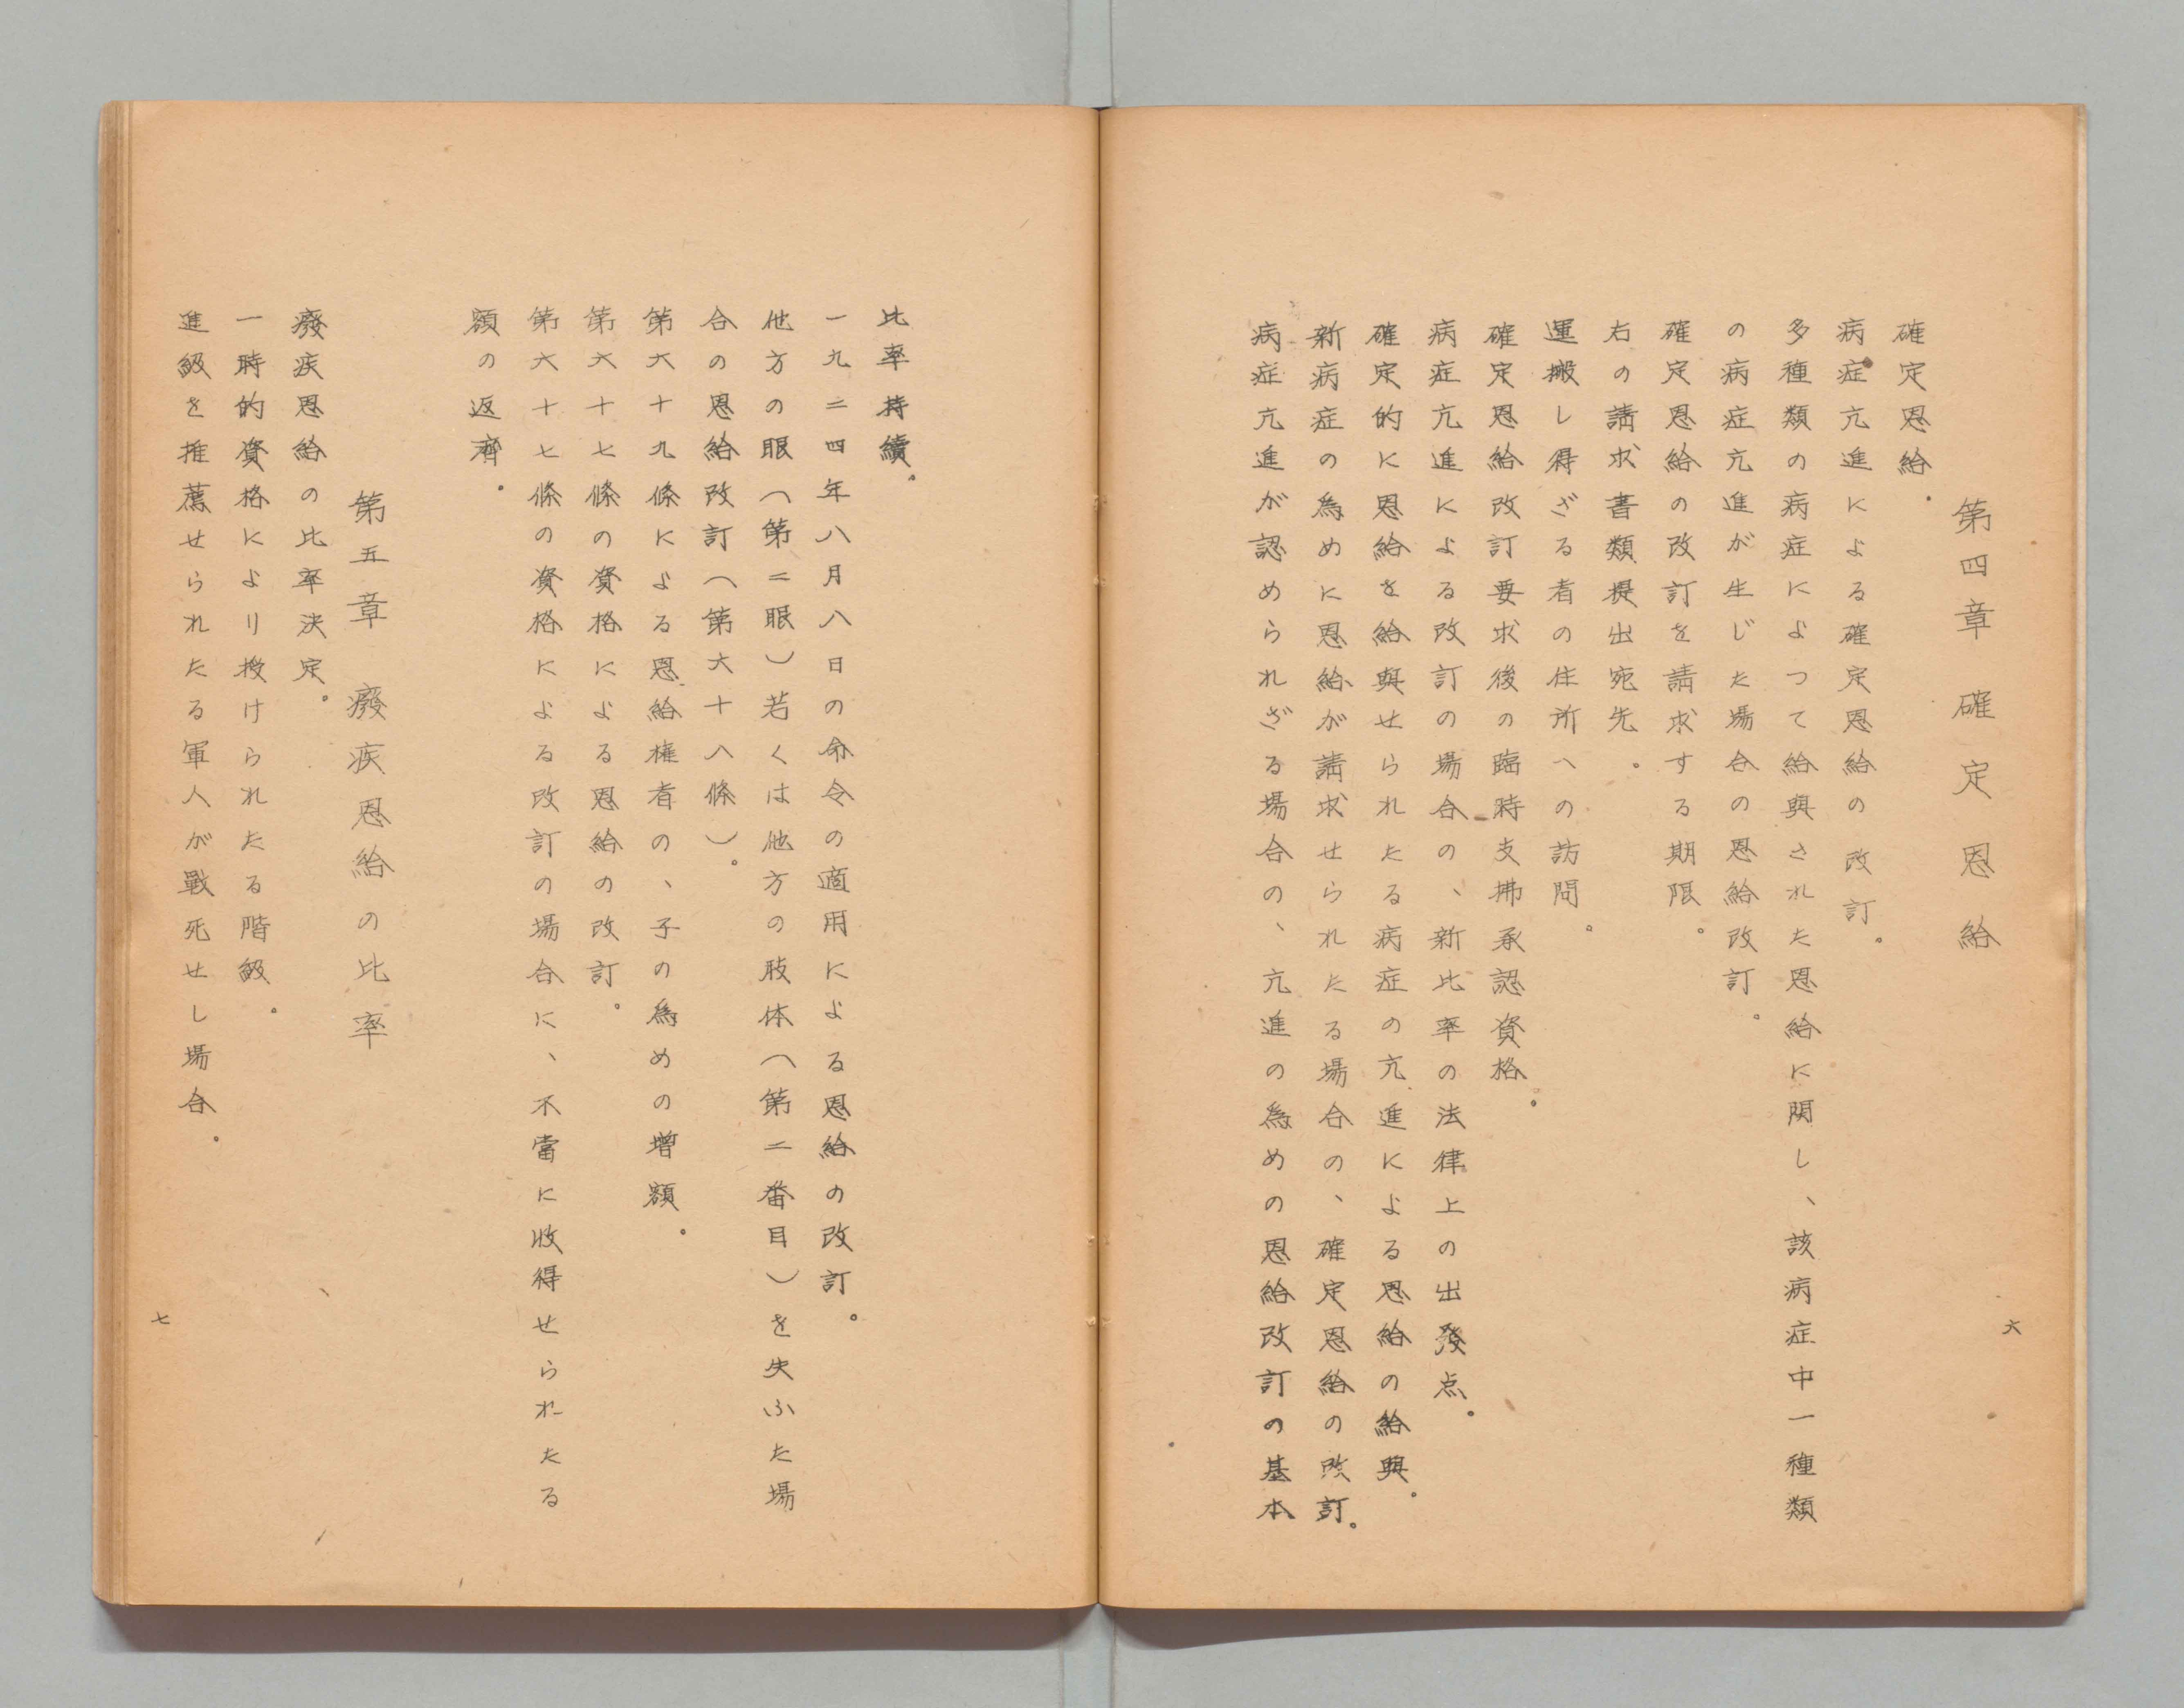 第四章　確定恩給
確定恩給。
病症亢進による確定恩給の改訂。
多種類の病症によつて給與された恩給に関し、該病症中一種類
の病症亢進が生じた場合の恩給改訂。
確定恩給の改訂を請求する期限。
右の請求書類提出宛先。
運搬し得ざる者の住所への訪問。
確定恩給改訂要求後の臨時支拂承認資格。
病症亢進による改訂の場合の、新比率の法律上の出發点。
確定的に恩給を給與せられたる病症の亢進による恩給の給與。
新病症の為めに恩給が請求せられたる場合の、確定恩給の改訂。
病症亢進が認められざる場合の、亢進の為めの恩給改訂の基本
六
比率持續。
一九二四年八月八日の命令の適用による恩給の改訂。
他方の眼（第二眼）若くは他方の肢体（第二番目）を失ふた場
合の恩給改訂（第六十八條）。
第六十九條による恩給権者の、子の為めの増額。
第六十七條の資格による恩給の改訂。
第六十七條の資格による改訂の場合に、不當に收得せられたる
額の返齊。
第五章　癈疾恩給の比率
癈疾恩給の比率決定。
一時的資格により授けられたる階級。
進級を推薦せられたる軍人が戰死せし場合。
七